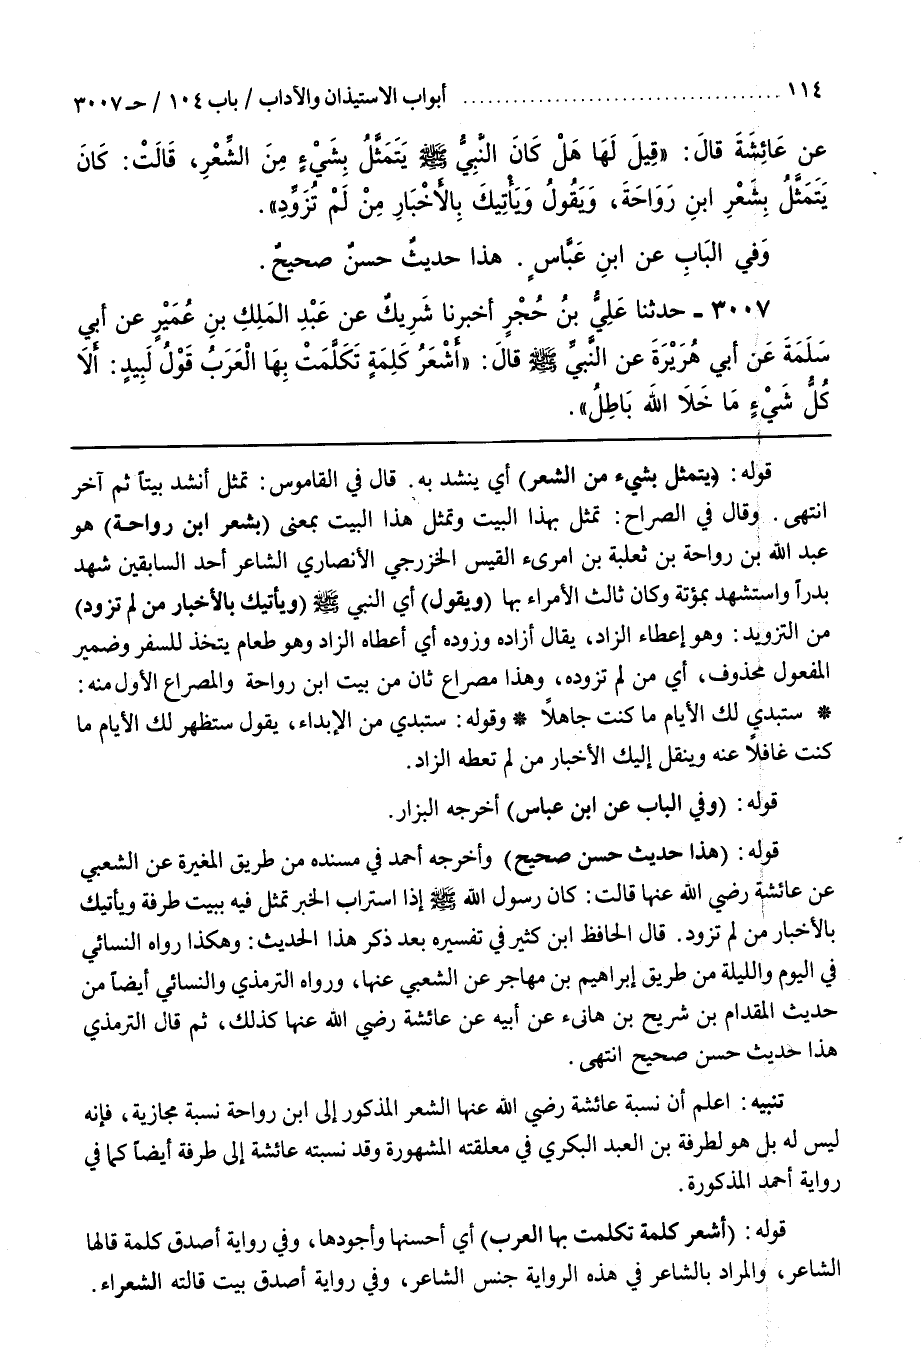 ١١٤ ........................................ أبواب الاستيذان والآداب / باب ١٠٤ / حـ ٣٠٠٧
عن عَائِشَةَ قالَ: «قِيلَ لَهَا هَلْ كَانَ النَّبِيُّ ﷺ يَتَمَثَّلُ بِشَيْءٍ مِنَ الشِّعْرِ، قَالَتْ: كَانَ
يَتَمَثَّلُ بِشَعْرِ ابنِ رَوَاحَةَ، وَيَقُولُ وَيَأْتِيكَ بِالأَخْبَارِ مِنْ لَمْ تُزَوِّدِ».
وَفي البَابِ عن ابنِ عَبَّاسٍ. هذا حديثٌ حسنٌ صحيحٌ.
٣٠٠٧ ـ حدثنا عَلِيُّ بنُ حُجْرٍ أخبرنا شَرِيكٌ عن عَبْدِ المَلِكِ بنِ عُمَيْرٍ عن أبي
سَلَمَةَ عَن أبي هُرَيْرَةَ عن النَّبيِّ ﷺ قالَ: «أَشْعَرُ كَلِمَةٍ تَكَلَّمَتْ بِهَا الْعَرَبُ قَوْلُ لَبِيدٍ: أَلَا
كُلُّ شَيْءٍ مَا خَلَا الله بَاطِلُ».
قوله: (يتمثل بشيء من الشعر) أي ينشد به. قال في القاموس: تمثل أنشد بيتاً ثم آخر
انتهى. وقال في الصراح: تمثل بهذا البيت وتمثل هذا البيت بمعنى (بشعر ابن رواحة) هو
عبد الله بن رواحة بن ثعلبة بن امرىء القيس الخزرجي الأنصاري الشاعر أحد السابقين شهد
بدراً واستشهد بمؤتة وكان ثالث الأمراء بها (ويقول) أي النبي ﷺ (ويأتيك بالأخبار من لم تزود)
من التزويد: وهو إعطاء الزاد، يقال أزاده وزوده أي أعطاه الزاد وهو طعام يتخذ للسفر وضمير
المفعول محذوف، أي من لم تزوده، وهذا مصراع ثان من بيت ابن رواحة والمصراع الأول منه:
* ستبدي لك الأيام ما كنت جاهلاً * وقوله: ستبدي من الإبداء، يقول ستظهر لك الأيام ما
كنت غافلاً عنه وينقل إليك الأخبار من لم تعطه الزاد.
قوله: (وفي الباب عن ابن عباس) أخرجه البزار.
قوله: (هذا حديث حسن صحيح) وأخرجه أحمد في مسنده من طريق المغيرة عن الشعبي
عن عائشة رضي الله عنها قالت: كان رسول الله ﷺ إذا استراب الخبر تمثل فيه ببيت طرفة ويأتيك
بالأخبار من لم تزود. قال الحافظ ابن كثير في تفسيره بعد ذكر هذا الحديث: وهكذا رواه النسائي
في اليوم والليلة من طريق إبراهيم بن مهاجر عن الشعبي عنها، ورواه الترمذي والنسائي أيضاً من
حديث المقدام بن شريح بن هانىء عن أبيه عن عائشة رضي الله عنها كذلك، ثم قال الترمذي
هذا حديث حسن صحيح انتهى.
تنبيه: اعلم أن نسبة عائشة رضي الله عنها الشعر المذكور إلى ابن رواحة نسبة مجازية، فإنه
ليس له بل هو لطرفة بن العبد البكري في معلقته المشهورة وقد نسبته عائشة إلى طرفة أيضاً كما في
رواية أحمد المذكورة.
قوله: (أشعر كلمة تكلمت بها العرب) أي أحسنها وأجودها، وفي رواية أصدق كلمة قالها
الشاعر، والمراد بالشاعر في هذه الرواية جنس الشاعر، وفي رواية أصدق بيت قالته الشعراء.